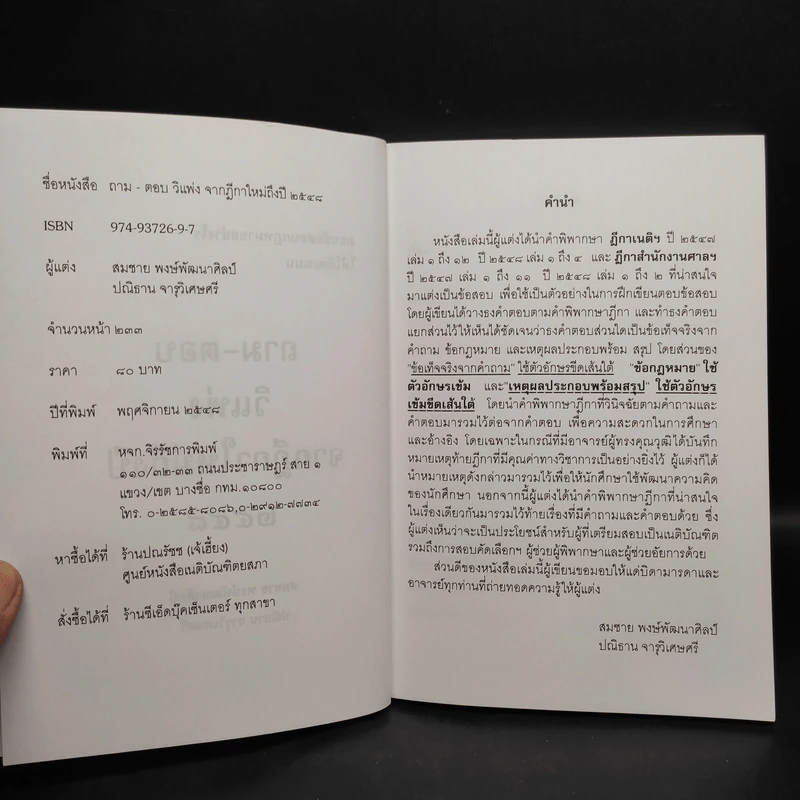 ชื่อหนังสือ ถาม - ตอบ วิแพ่ง จากฎีกาใหม่ถึงปี ๒๕๔๘
ISBN 974-93726-9-7
ผู้แต่ง สมชาย พงษ์พัฒนาศิลป์
ปณิธาน จารุวิเศษศรี
จำนวนหน้า ๒๓๓
ราคา ๘๐ บาท
ปีที่พิมพ์ พฤศจิกายน ๒๕๔๘
พิมพ์ที่ หจก.จิรรัชการพิมพ์
๑๑๐/๓๒-๓๓ ถนนประชาราษฎร์ สาย ๑
แขวง/เขต บางซื่อ กทม.๑๐๘๐๐
โทร. ๐-๒๕๘๕-๘๐๘๖,๐-๒๙๑๒-๗๗๓๔
หาซื้อได้ที่ ร้านปณรัชช (เจ๊เฮี้ยง)
ศูนย์หนังสือเนติบัณฑิตยสภา
สั่งซื้อได้ที่ ร้านซีเอ็ดบุ๊คเซ็นเตอร์ ทุกสาขา
คำนำ
หนังสือเล่มนี้ผู้แต่งได้นำคำพิพากษา ฎีกาเนติฯ ปี ๒๕๔๗
เล่ม ๑ ถึง ๑๒ ปี ๒๕๔๘ เล่ม ๑ ถึง ๔ และ ฎีกาสำนักงานศาลฯ
ปี ๒๕๔๗ เล่ม ๑ ถึง ๑๑ ปี ๒๕๔๘ เล่ม ๑ ถึง ๒ ที่น่าสนใจ
มาแต่งเป็นข้อสอบ เพื่อใช้เป็นตัวอย่างในการฝึกเขียนตอบข้อสอบ
โดยผู้เขียนได้วางธงคำตอบตามคำพิพากษาฎีกา และทำธงคำตอบ
แยกส่วนไว้ให้เห็นได้ชัดเจนว่าธงคำตอบส่วนใดเป็นข้อเท็จจริงจาก
คำถาม ข้อกฎหมาย และเหตุผลประกอบพร้อม สรุป โดยส่วนของ
"ข้อเท็จจริงจากคำถาม" ใช้ตัวอักษรขีดเส้นใต้ "ข้อกฎหมาย" ใช้
ตัวอักษรเข้ม และ"เหตุผลประกอบพร้อมสรุป" ใช้ตัวอักษร
เข้มขีดเส้นใต้ โดยนำคำพิพากษาฎีกาที่วินิจฉัยตามคำถามและ
คำตอบมารวมไว้ต่อจากคำตอบ เพื่อความสะดวกในการศึกษา
และอ้างอิง โดยเฉพาะในกรณีที่มีอาจารย์ผู้ทรงคุณวุฒิได้บันทึก
หมายเหตุท้ายฎีกาที่มีคุณค่าทางวิชาการเป็นอย่างยิ่งไว้ ผู้แต่งก็ได้
นำหมายเหตุดังกล่าวมารวมไว้เพื่อให้นักศึกษาใช้พัฒนาความคิด
ของนักศึกษา นอกจากนี้ผู้แต่งได้นำคำพิพากษาฎีกาที่น่าสนใจ
ในเรื่องเดียวกันมารวมไว้ท้ายเรื่องที่มีคำถามและคำตอบด้วย ซึ่ง
ผู้แต่งเห็นว่าจะเป็นประโยชน์สำหรับผู้ที่เตรียมสอบเป็นเนติบัณฑิต
รวมถึงการสอบคัดเลือกฯ ผู้ช่วยผู้พิพากษาและผู้ช่วยอัยการด้วย
ส่วนดีของหนังสือเล่มนี้ผู้เขียนขอมอบให้แด่บิดามารดาและ
อาจารย์ทุกท่านที่ถ่ายทอดความรู้ให้ผู้แต่ง
สมชาย พงษ์พัฒนาศิลป์
ปณิธาน จารุวิเศษศรี